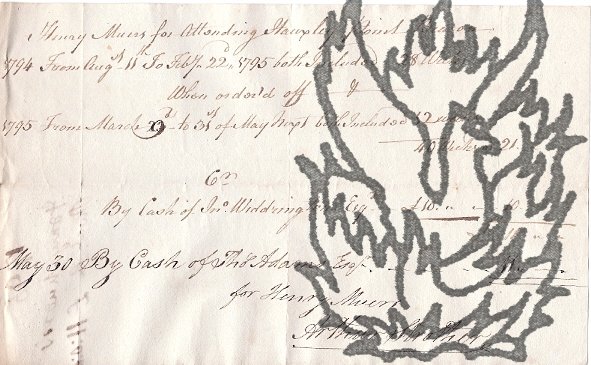 Henry Muers for Attending Hauxley Point Beacon
1794 From Augst 11th To Feby. 22d, 1795 both Included 28 Weeks
When order'd off &
1795 From March to 31st of May Next both Included 12
40 Weeks 21
Cr
By Cash of Jno. Widdrington Esqr £10
May 30 By Cash of Thos Adams Esqr. 11
for Henry Muers
Arthur